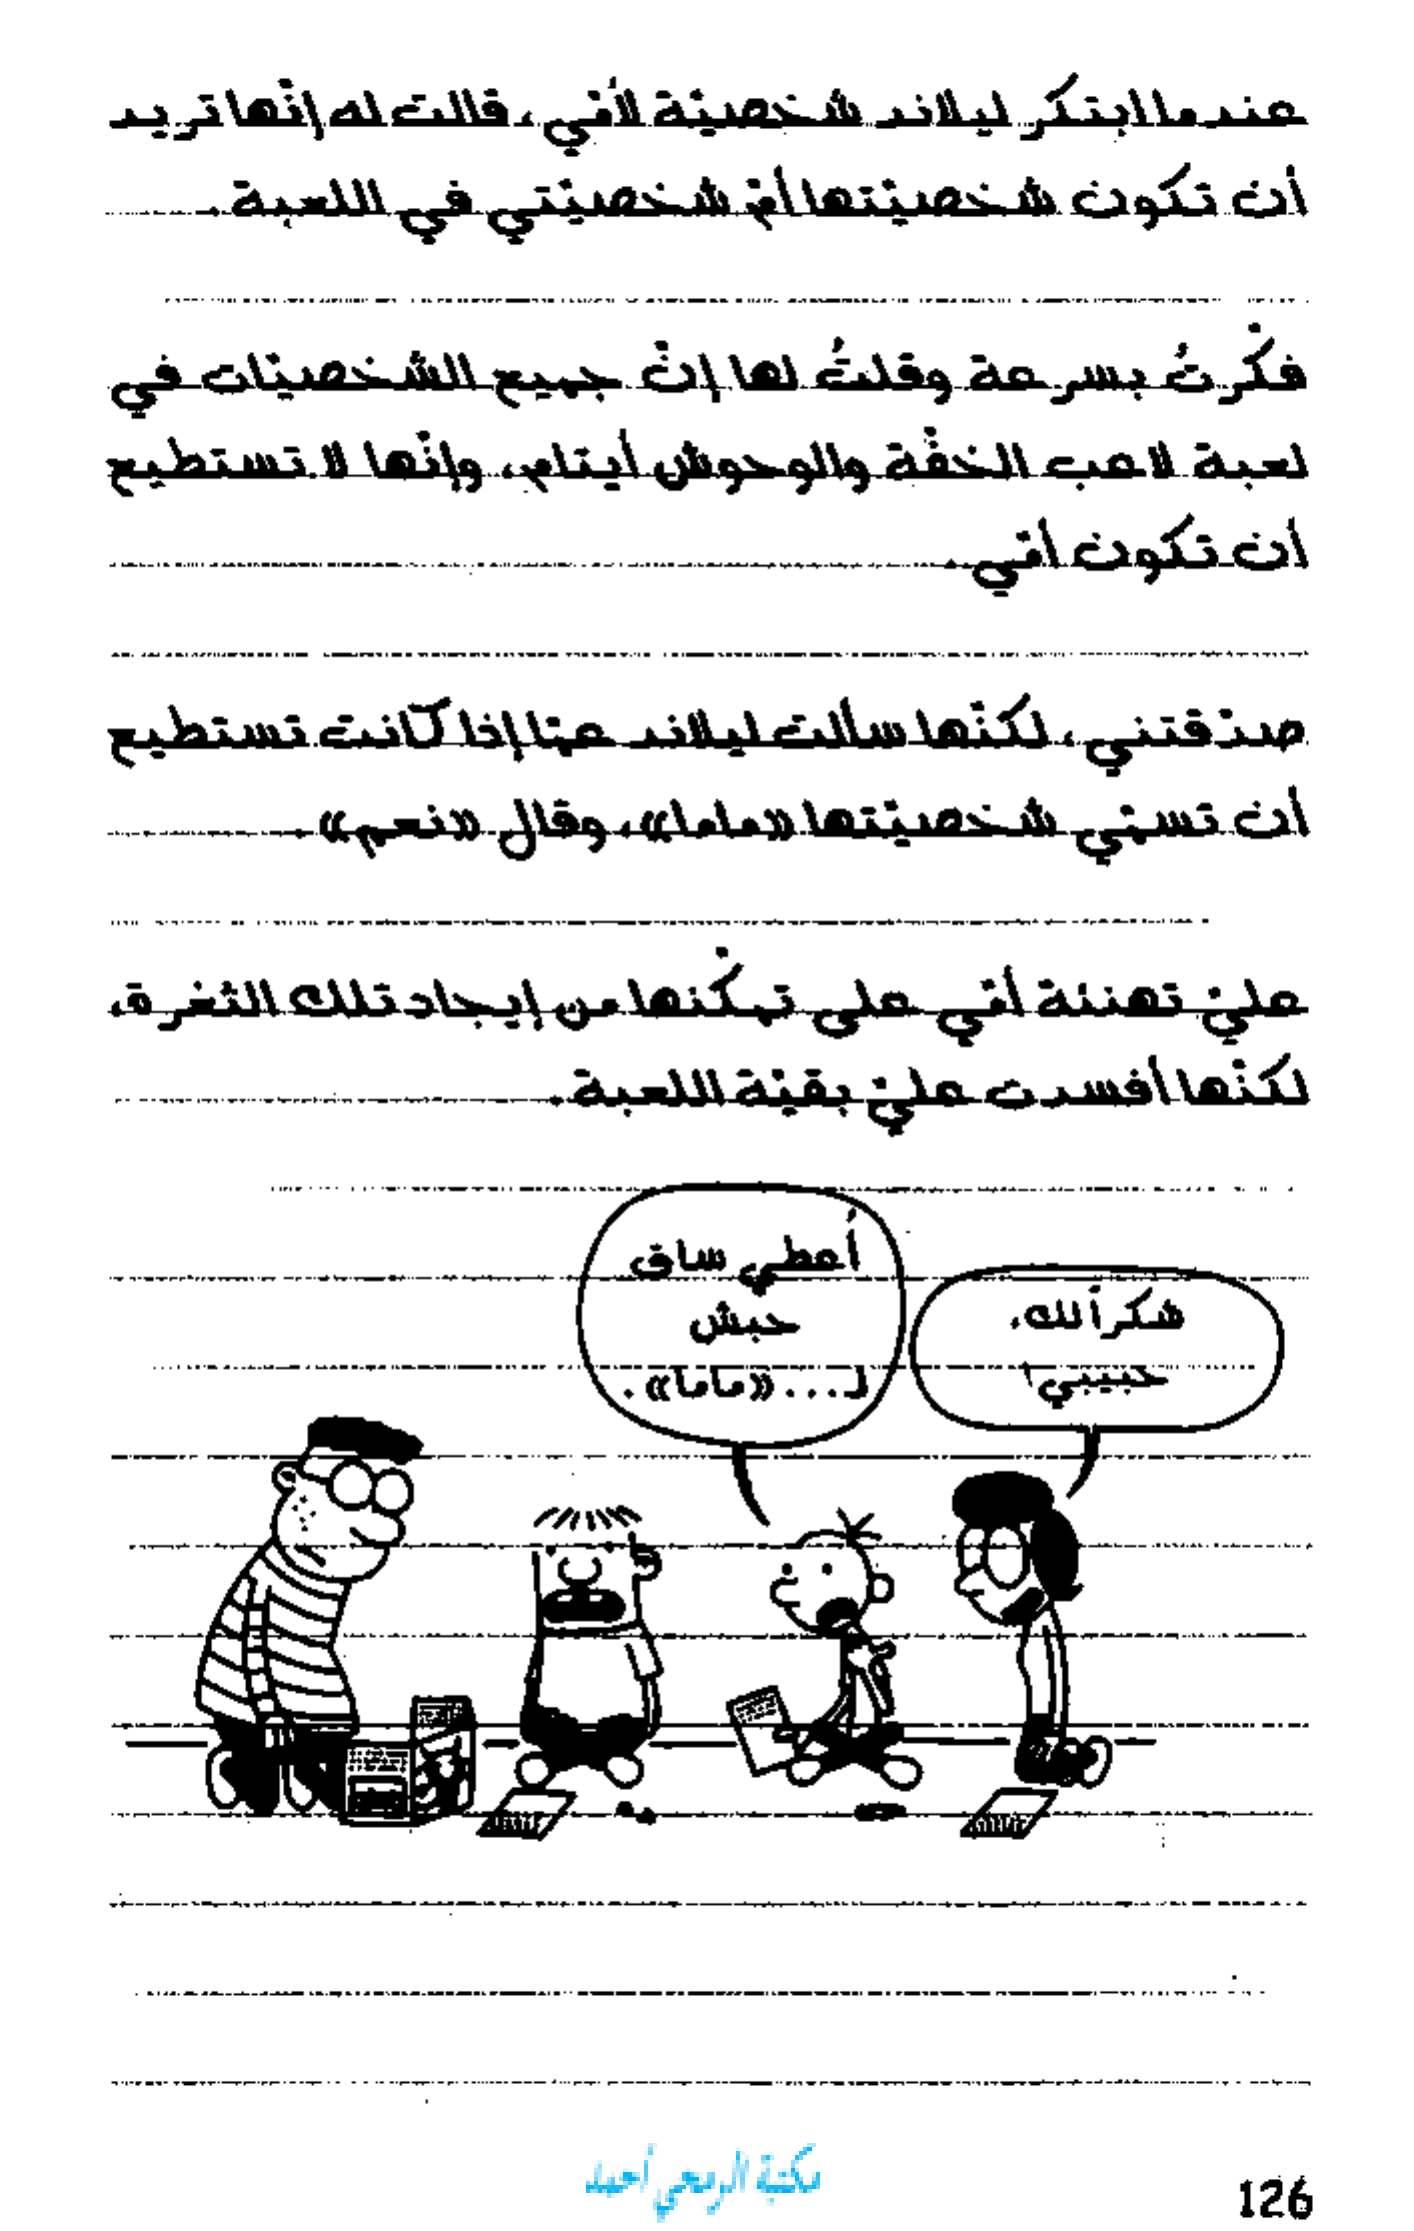 عندما ابتكر ليلاند شخصيّة لأمّي، قالت له إنّها تريد
أن تكون شخصيّتها أمّ شخصيّتي في اللعبة.
فكّرتُ بسرعة وقلتُ لها إنّ جميع الشخصيّات في
لعبة لاعب الخفّة والوحوش أيتام، وإنّها لا تستطيع
أن تكون أمّي.
صدّقتني، لكنّها سألت ليلاند عمّا إذا كانت تستطيع
أن تسمّي شخصيّتها «ماما»، وقال «نعم».
عليّ تهنئة أمّي على تمكّنها من إيجاد تلك الثغرة،
لكنّها أفسدت عليّ بقيّة اللعبة.
أُعطي ساق
حبش
لـ... «ماما».
شكراً لك،
حبيبي!
مكتبة الرمحي أحمد
126